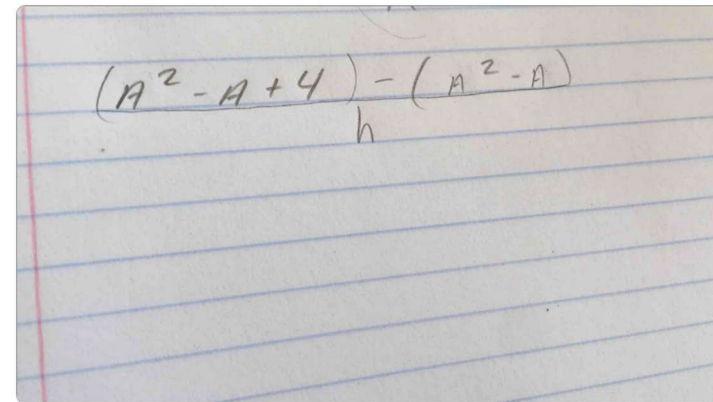 (A² - A + 4) - (A² - A)
h